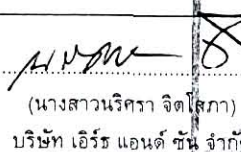 (นางสาวนริศรา จิตโสภา)
บริษัท เอิร์ธ แอนด์ ซัน จำกัด